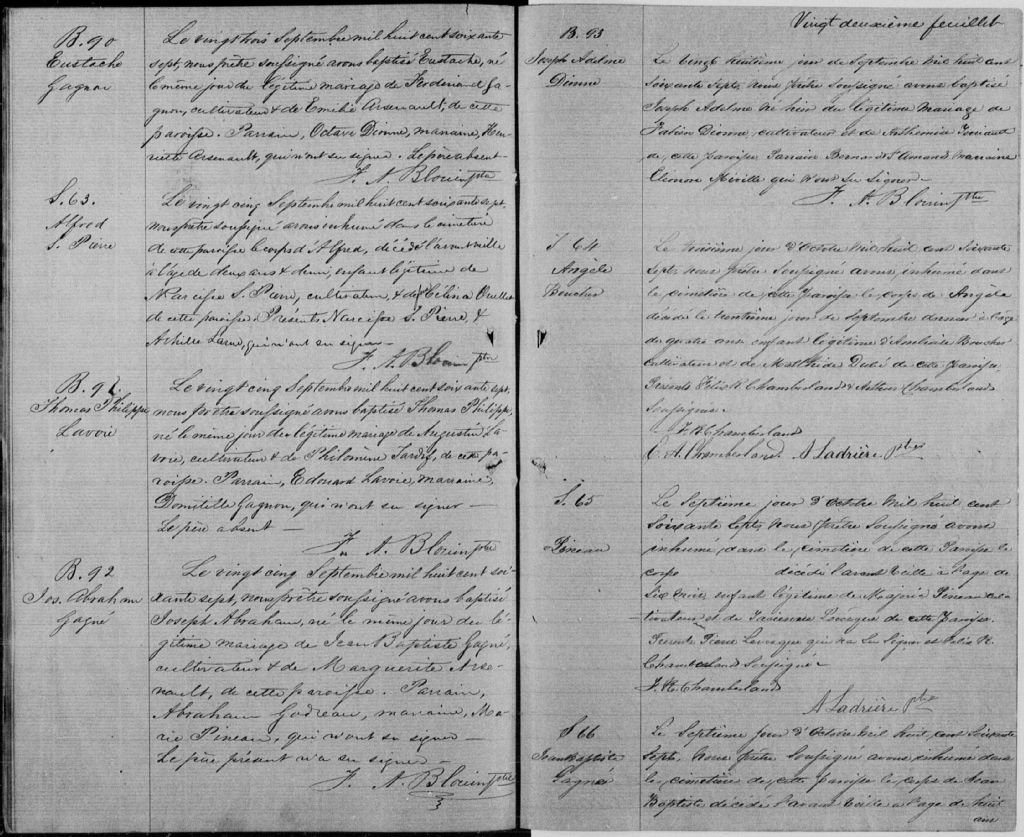 B. 90
Eustache
Gagnon
Le vingt trois Septembre mil huit cent soixante
sept, nous prêtre soussigné avons baptisé Eustache, né
le même jour du légitime mariage de Ferdinand Ga-
gnon, cultivateur & de Emilie Arsenault, de cette
paroisse. Parrain, Octave Dionne, marraine, Hen-
riette Arsenault, qui n'ont su signer. Le père absent—
F. A. Blouin ptre
S. 63.
Alfred
S. Pierre
Le vingt cinq Septembre mil huit cent soixante sept,
nous prêtre soussigné avons inhumé dans le cimetière
de cette paroisse le corps d'Alfred, décédé l'avant veille
à l'âge de deux ans & demi, enfant légitime de
Narcisse S. Pierre, cultivateur, & de Célina Ouellet
de cette paroisse. Présents Narcisse S. Pierre, &
Achille Larue, qui n'ont su signer—
F. A. Blouin ptre
B. 91.
Thomas Philippe
Lavoie
Le vingt cinq Septembre mil huit cent soixante sept,
nous prêtre soussigné avons baptisé Thomas Philippe,
né le même jour du légitime mariage de Augustin La-
voie, cultivateur & de Philomène, de cette pa-
roisse. Parrain, Edouard Lavoie, marraine,
Domitille Gagnon, qui n'ont su signer—
Le père absent—
F. A. Blouin ptre
B. 92
Jos. Abraham
Gagné
Le vingt cinq Septembre mil huit cent soi-
xante sept, nous prêtre soussigné avons baptisé
Joseph Abraham, né le même jour du lé-
gitime mariage de Jean Baptiste Gagné,
cultivateur & de Marguerite Arse-
nault, de cette paroisse. Parrain,
Abraham Godreau, marraine, Ma-
rie Pineau, qui n'ont su signer—
Le père présent n'a su signer—
F. A. Blouin ptre
Vingt deuxième feuillet
B. 93
Joseph Adelme
Dionne
Le vingt huitième jour de Septembre mil huit cent
soixante sept, nous prêtre soussigné avons baptisé
Joseph Adelme né hier du légitime mariage de
Fabien Dionne, cultivateur et de Anthemise
de cette paroisse Parrain Bernard St Amand marraine
Eléonore Miville qui n'ont su signer—
F. A. Blouin ptre
S 64
Angèle
Boucher
Le troisième jour d'Octobre mil huit cent soixante
sept, nous prêtre soussigné avons inhumé dans
le cimetière de cette paroisse le corps de Angèle
décédé le trentième jour de Septembre dernier à l'age
de quatre ans enfant légitime d'Boucher
cultivateur et de Mathilde Dubé de cette paroisse
Présents Felix R Chamberland & Arthur Chamberland
soussignés.
F. R Chamberland
C. A. Chamberland A Ladrière Ptre
S. 65
Pineau
Le Septième jour d'Octobre mil huit cent
soixante sept, nous prêtre soussigné avons
inhumé dans le cimetière de cette Paroisse le
corps décédé l'avant veille à l'age de
six mois enfant légitime de Majric Pineau cul-
tivateur et de Levesque de cette paroisse.
Présents Pierre Levesque qui n'a su signer et Felix R.
Chamberland soussigné—
F. R. Chamberland
A Ladrière Ptre
S 66
Jean Baptiste
Gagnon
Le Septième jour d'Octobre mil huit cent soixante
sept, nous prêtre soussigné avons inhumé dans
le cimetière de cette paroisse le corps de Jean
Baptiste décédé l'avant veille à l'age de huit
ans